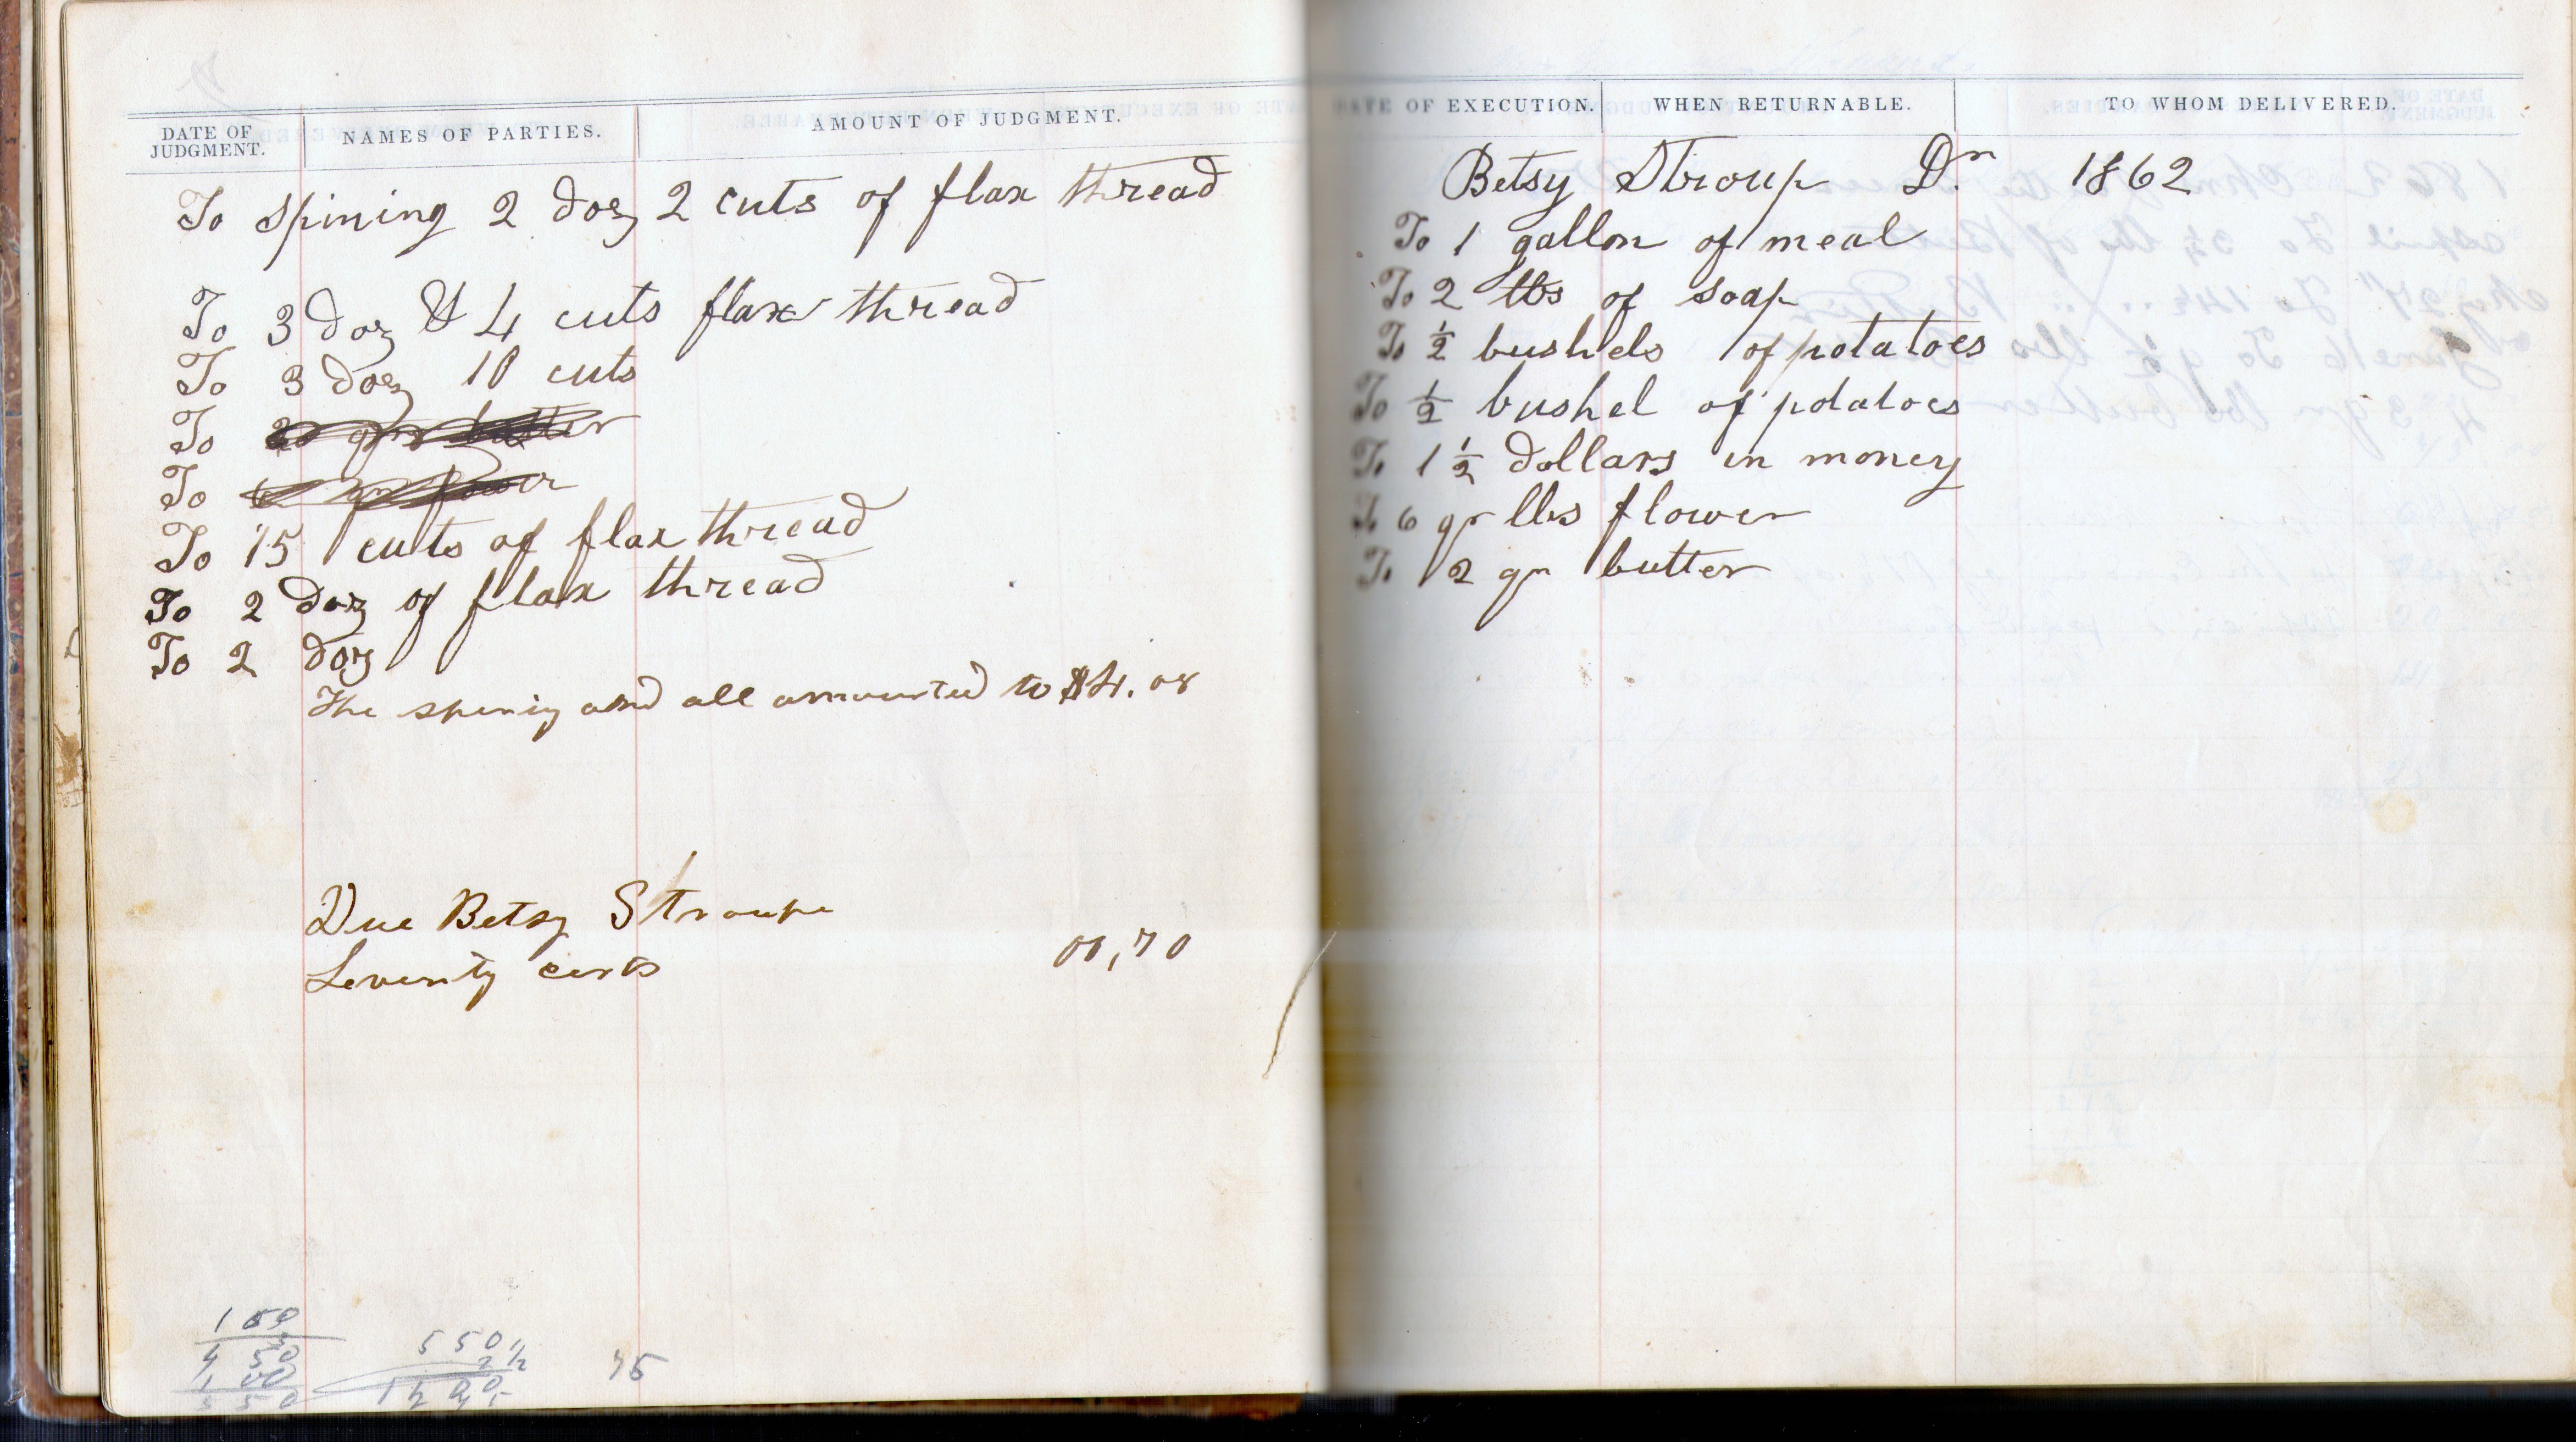 DATE OF JUDGMENT. NAMES OF PARTIES. AMOUNT OF JUDGMENT.
To spining 2 doz 2 cuts of flax thread
To 3 doz & 4 cuts flax thread
To 3 doz 10 cuts
To 2 qr butter
To 6 qr flower
To 15 cuts of flax thread
To 2 doz of flax thread
To 2 doz
The spining and all amounted to $4.08
Due Betsy Stroupe
Seventy cents 00,70
150
3
4 50
1 00
5 50
550
2 1/2
75
DATE OF EXECUTION. WHEN RETURNABLE. TO WHOM DELIVERED.
Betsy Stroup Dr. 1862
To 1 gallon of meal
To 2 lbs of soap
To 1/2 bushels of potatoes
To 1/2 bushel of potatoes
To 1 1/2 dollars in money
To 6 qr lbs flower
To 2 qr butter